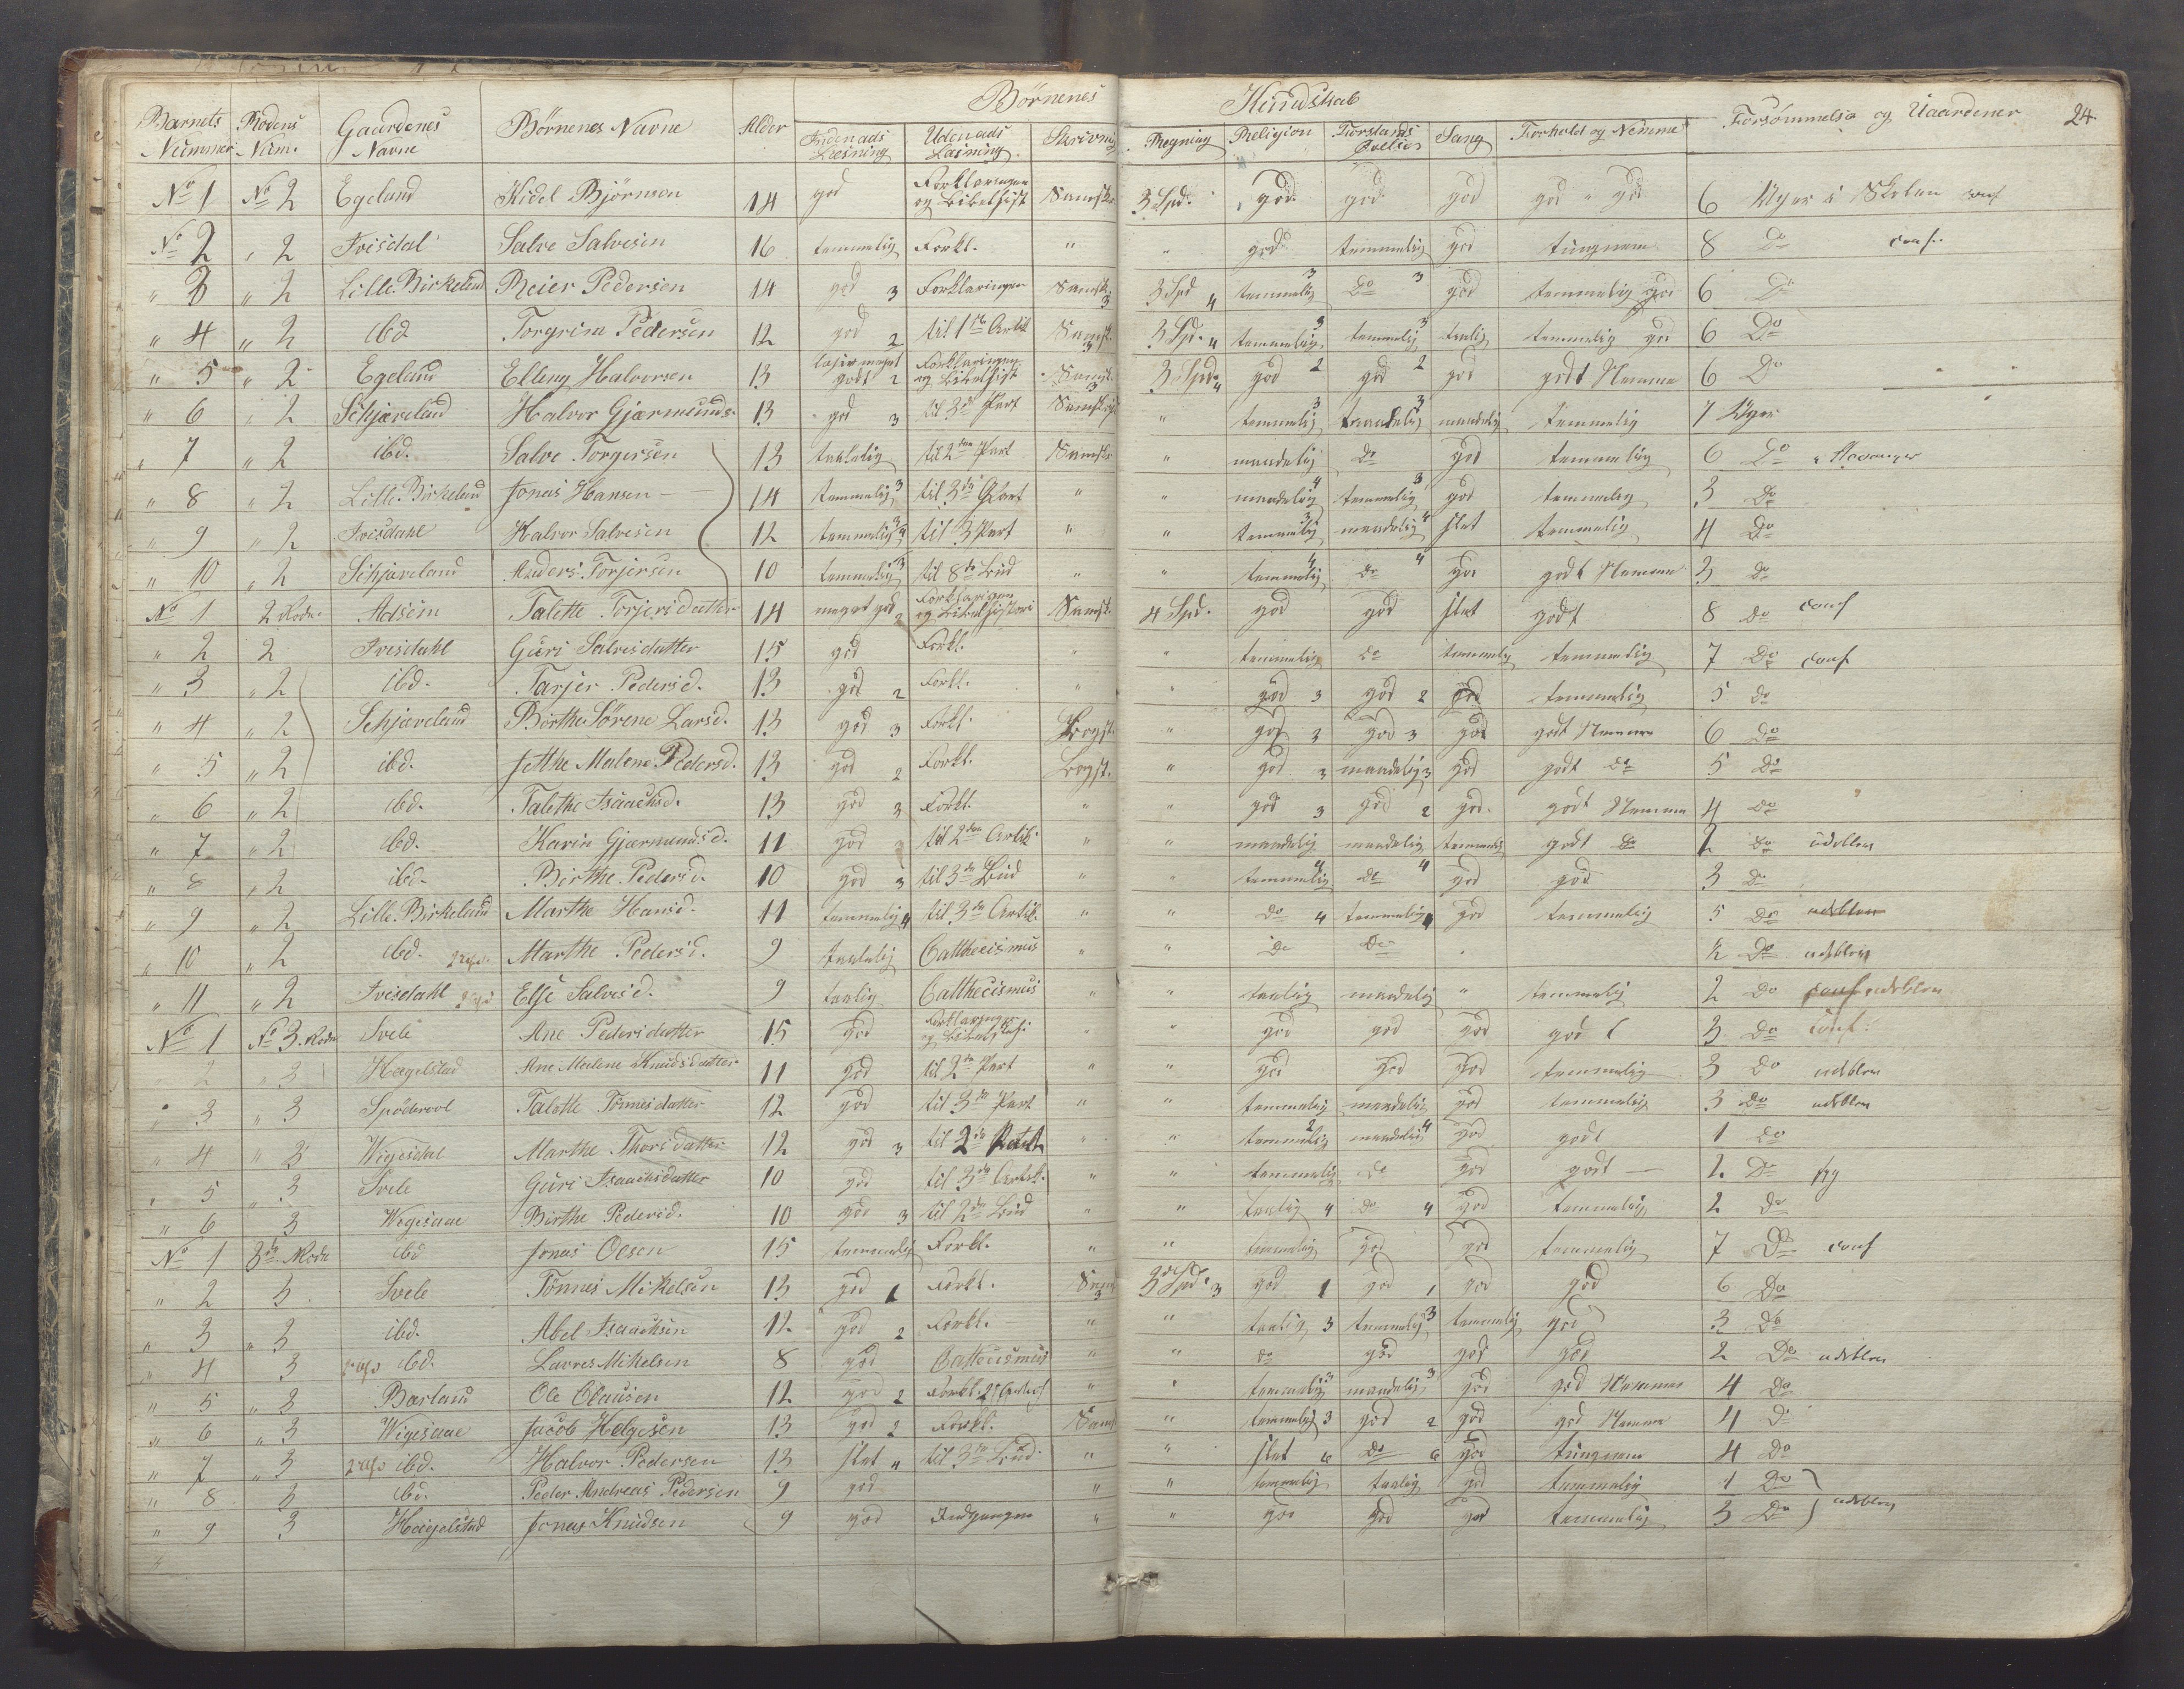 Børnenes Kundskab
24
Barnets Nummer Rodens Num. Gaardenes Navne Børnenes Navne Alder Indenads Læsning Udenads Læsning Skrivning Regning Religion Forstands Øvelser Sang Forhold og Nemme Forsømmelse og Uaardener
No 1 No 2 Egeland Kidel Bjørnsen 14 god Forklaringen og Bibelhist Samsk. 3 Spd. god god god god " god 6 Uger i Skolen conf
No 2 " 2 Tveisdal Salve Salvesen 16 temmelig Forkl. " " god temmelig god tungnem 8 Do conf.
" 3 " 2 Lille Birkeland Reier Pedersen 14 god 3 Forklaringen Samsk. 3 3 Spd 4 temmelig 3 Do 3 god temmelig god 6 Do
" 4 " 2 ibd Torgrim Pedersen 12 god 2 til 1ste Artik Samsk. 3 3 Spd. 4 temmelig 3 temmelig 3 taalig temmelig god 6 Do
" 5 " 2 Egeland Elling Halvorsen 13 læser meget godt 2 Forklaringen og Bibelhist Samsk. 3 3 Spd. 4 god 2 god 2 god godt Nemme 6 Do
" 6 " 2 Schjæveland Halvor Gjærmunds. 13 god 3 til 3de Part Samskr " temmelig 3 maadelig 3 maadelig temmelig 7 Uger
" 7 " 2 ibd. Salve Torgersen 13 taalelig til 2den Part Samsk " maadelig Do god temmelig 6 Do
" 8 " 2 Lille Birkeland Jonas Hansen 14 temmelig 3 til 3de Part " " maadelig 4 temmelig 3 god temmelig 3 Do
" 9 " 2 Tveisdahl Halvor Salvesen 12 temmelig til 3 Part " " temmelig 3 maadelig 4 slet temmelig 4 Do
" 10 " 2 Schjæveland Anders Torjersen 10 temmelig 3 til 8de Bud " " temmelig 4 Do 4 god godt Nemme 3 Do
No 1 2 Rode Talette Torjersdatter 14 meget god 2 Forklaringen og Bibelhistori Samsk. 4 Spd. god god slet godt 8 Do conf
" 2 2 Tveisdahl Guri Salvesdatter 15 god Forkl. " " temmelig Do temmelig temmelig 7 Do conf
" 3 " 2 ibd. Tarjer Pedersd. 13 god 2 Forkl. " " god 3 god 2 god temmelig 5 Do
" 4 " 2 Schjæveland Birthe Sørene Larsd. 13 god 3 Forkl. Bogst. " god 3 god 3 god godt Nemme 6 Do
" 5 " 2 ibd. Jetthe Malene Pedersd. 13 god 2 Forkl. Bogst. " god 3 maadelig 3 god godt Do 5 Do
" 6 " 2 ibd. Talethe Isaachsd. 13 god 3 Forkl. " " god 3 god 2 god. godt Nemme 4 Do
" 7 " 2 ibd. Karin Gjærmundsd. 11 god 3 til 2den Artik. " " maadelig maadelig temmelig godt Do 2 Do udebleven
" 8 " 2 ibd. Birthe Pedersd. 10 god 3 til 3de Bud " " temmelig 4 Do 4 god god 3 Do
" 9 " 2 Lille Birkeland Marthe Hansd. 11 temmelig 4 til 3de Artik. " " Do 4 temmelig 4 god temmelig 5 Do
" 10 " 2 ibd. Marthe Pedersd. 9 taalelig Catthecismus " " Do Do 2 Do udebleven
" 11 " 2 Tveisdahl Else Salvesd. 9 taalig Catthecismus " " taalig maadelig " temmelig 2 Do conf udebleven
No 1 No 3. Rode Svele Ane Pedersdatter 15 god Forklaringen og Bibelhist " " god god god godt 3 Do conf.
2 " 3 Hægelstad Ane Malene Knudsdatter 11 god til 2de Part " " god god god temmelig 3 Do udebleven
" 3 " 3 Talette Tønnesdatter 12 god til 3de Part " " temmelig maadelig god temmelig 3 Do udebleven
" 4 " 3 Wigesdal Marthe Thorsdatter 12 god 3 til 2de " " temmelig 2 maadelig 4 god godt 1 Do
" 5 " 3 Svele Guri Isaachsdatter 10 god til 3de Artik. " " temmelig Do god godt 2. Do
" 6 3 Wigesaae Birthe Pedersd. 10 god 3 til 2de Bud " " taalig 4 Do 4 god temmelig 2 Do
No 1 3de Rode ibd Jonas Olsen 15 temmelig Forkl. " " temmelig god god temmelig 7 Do conf
" 2 3 Svele Tønnes Mikelsen 13 god 1 Forkl. Sams 3 3 Spd. 3 god 1 god 1 god god 6 Do
" 3 " 3 ibd. Abel Isaachsen 12 god 2 Forkl. " " taalig 3 temmelig 3 temmelig god 3 Do
" 4 3 ibd. Lavres Mikelsen 8 god Cattecismus " " Do god god god 2 Do udebleven
" 5 " 3 Barland Ole Clausen 12 god 2 Forkl. " " temmelig 3 maadelig 3 god god Nemme 4 Do
" 6 " 3 Wigesaae Jacob Helgesen 13 god 2 Forkl. Sams " temmelig 3 god 2 god god Nemme 4 Do
" 7 " 3 ibd. Halvor Pedersen 13 slet 4 til 3de Bud " " slet 6 Do 6 god tungnem 4 Do
" 8 3 ibd. Peder Andreas Pedersen 9 god " " temmelig taalig god temmelig 1 Do
" 9 3 Hægelstad Jonas Knudsen 9 god Indgangen " " god god god temmelig 3 Do udebleven